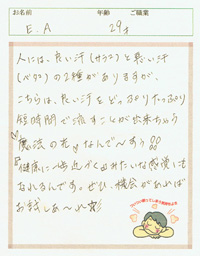 お名前 年齢 ご職業
E.A 29才
人には、良い汗(サラサラ)と悪い汗
(ベタベタ)の2種がありますが、
こちらは、良い汗をどっぷりたっぷり
短時間で流すことが出来ちゃう
魔法の なんで～す♡♡
健康に一歩近づくみたいな感覚にも
なれるんです。ぜひ、機会があれば
お試しあ～れ